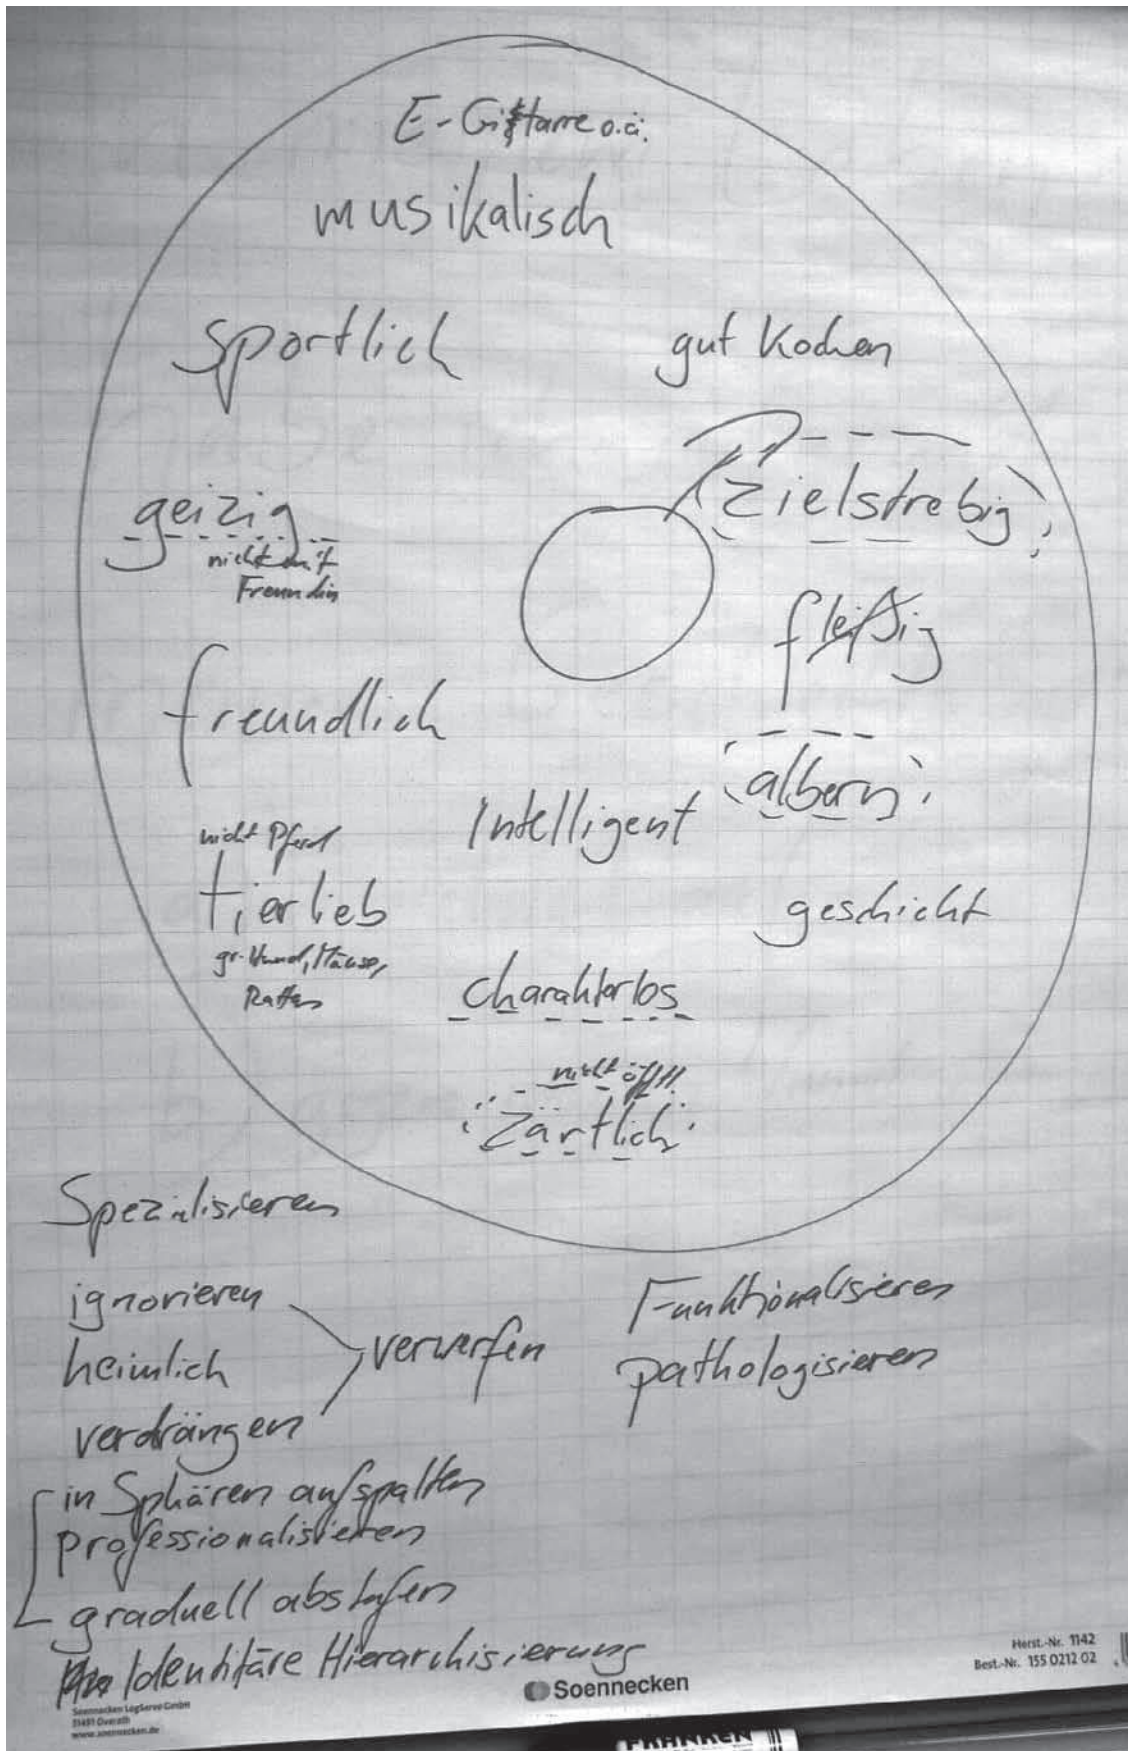 E-Gitarre o.ä.
musikalisch
sportlich
gut Kochen
zielstrebig
geizig
nicht mit
Freundin
fleißig
freundlich
albern
Intelligent
nicht Pferd
tierlieb
geschickt
gr. Hund, Mäuse,
Ratten
charakterlos
nicht öff!!
Zärtlich
Spezialisieren
ignorieren
heimlich
verwerfen
verdrängen
Funktionalisieren
pathologisieren
in Sphären aufspalten
professionalisieren
graduell abstufen
Identitäre Hierarchisierung
Soennecken
Herst.-Nr. 1142
Best.-Nr. 155 0212 02
Soennecken LogServe GmbH
51491 Overath
www.soennecken.de
FRANKEN